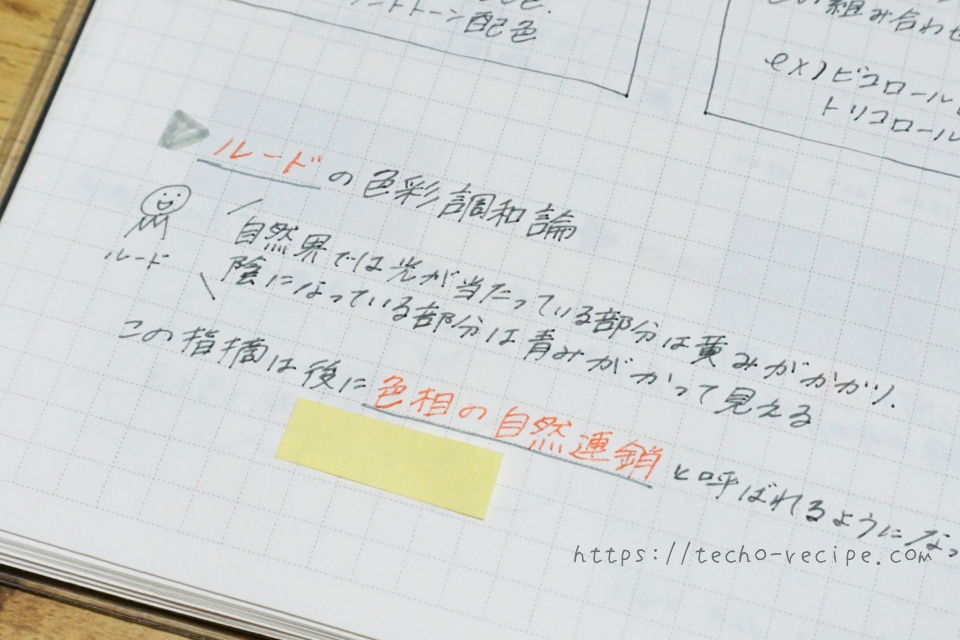 トーン配色
の組み合わせ
ex) ビコロール
トリコロール
ルードの色彩調和論
ルード
自然界では光が当たっている部分は黄みがかかり、
陰になっている部分は青みがかって見える
この指摘は後に色相の自然連鎖と呼ばれるようになっ
https://techo-recipe.com